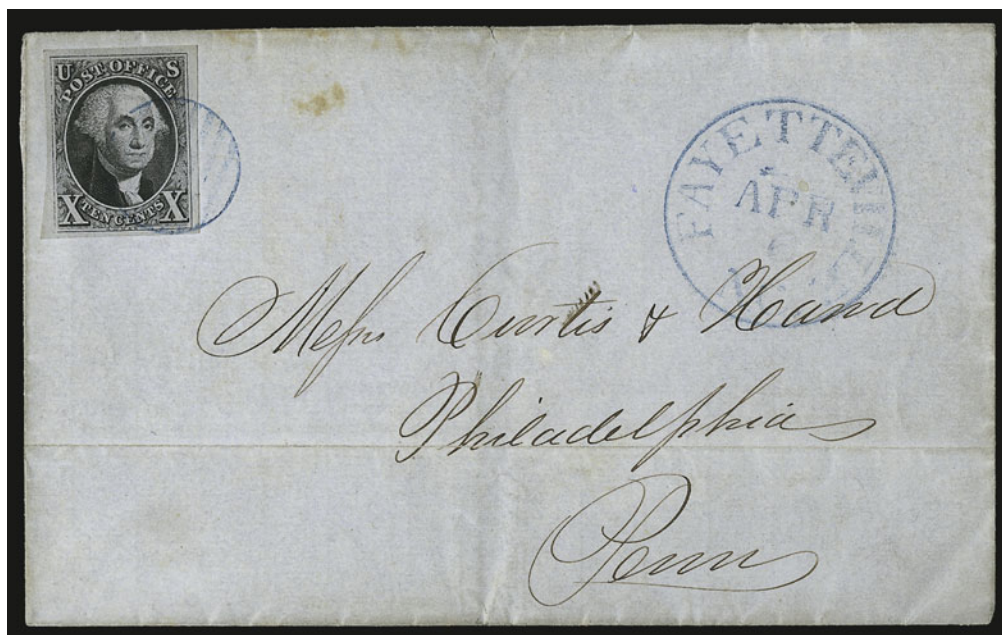 U S
POST OFFICE
X TEN CENTS X
FAYETTEVILLE
APR
Messrs Curtis & Hand
Philadelphia
Penn